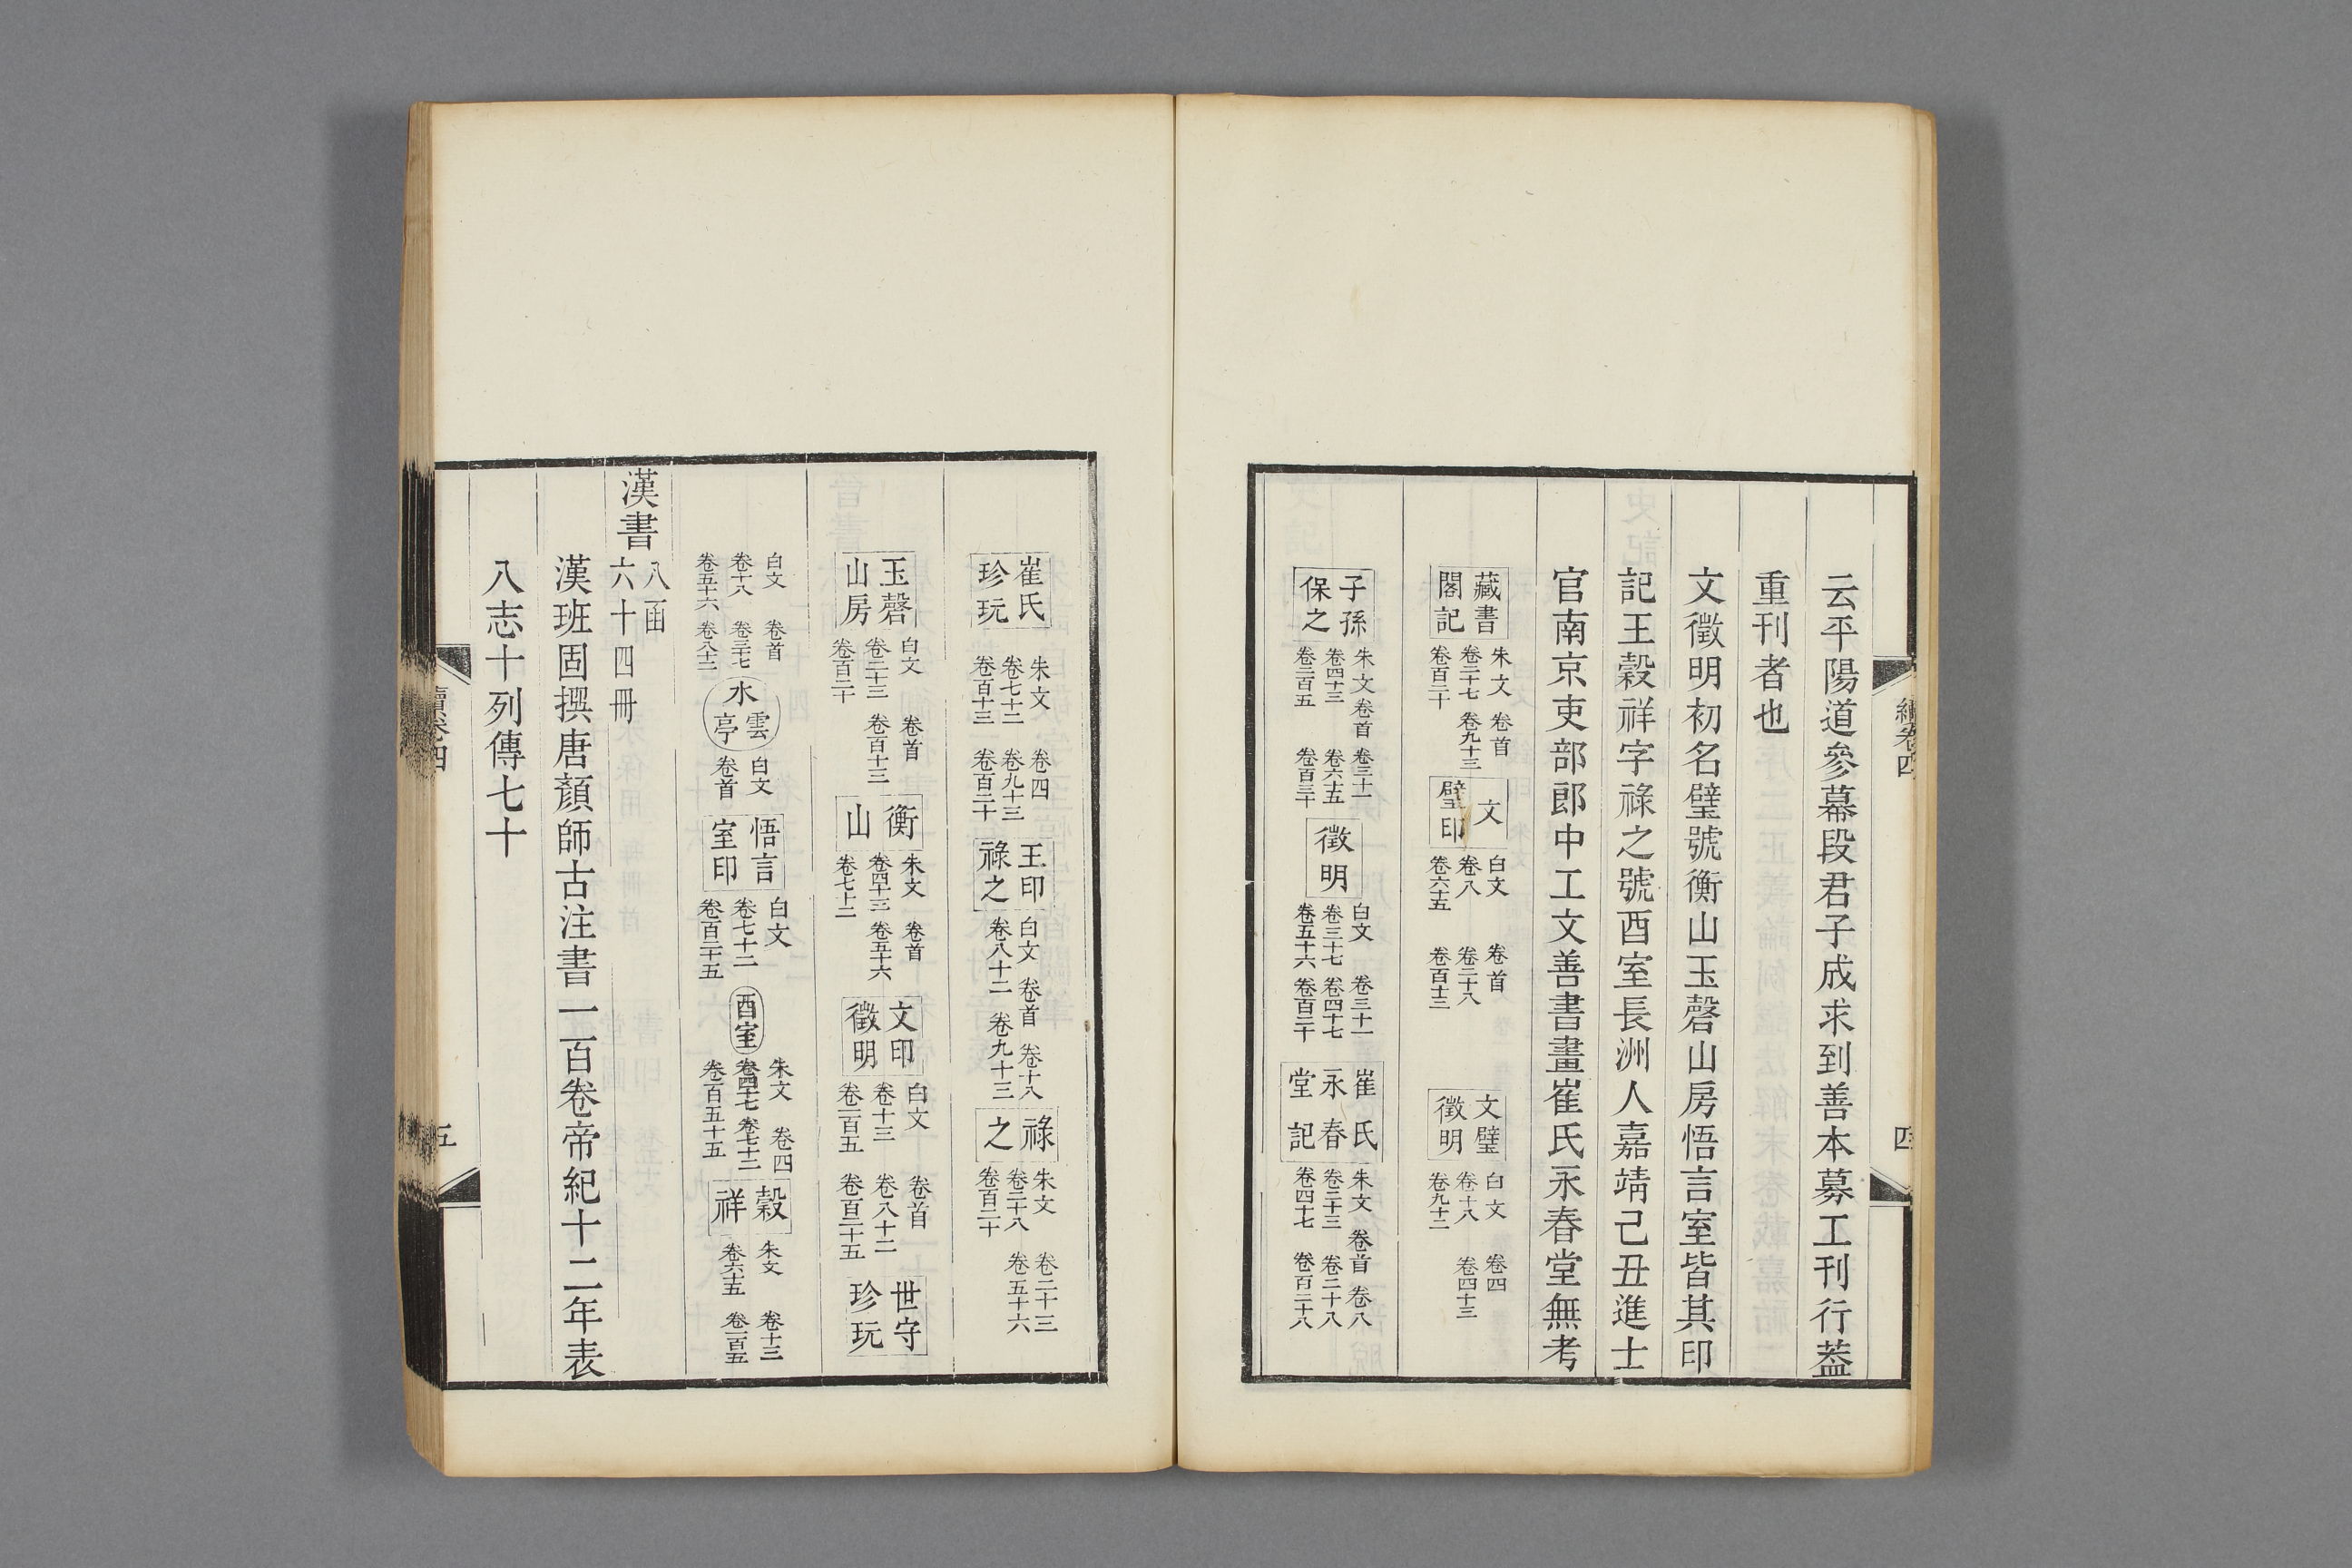 續卷四
四
云平陽道參幕段君子成求到善本募工刊行葢
重刊者也
文徵明初名璧號衡山玉磬山房悟言室皆其印
記王榖祥字祿之號酉室長洲人嘉靖己丑進士
官南京吏部郎中工文善書畫崔氏永春堂無考
藏書
閣記
朱文 卷首
卷二十七 卷九十三
卷百二十
文
璧印
白文 卷首
卷八 卷二十八
卷六十五 卷百十三
文璧
徵明
白文 卷四
卷十八 卷四十三
卷九十二
子孫
保之
朱文 卷首 卷三十一
卷四十三 卷六十五
卷二百五 卷百三十
徵
明
白文 卷三十一
卷三十七 卷四十七
卷五十六 卷百二十
崔氏
永春
堂記
朱文 卷首 卷八
卷二十三 卷二十八
卷四十七 卷百二十八
崔氏
珍玩
朱文 卷四
卷七十二 卷九十三
卷百十三 卷百二十
王印
祿之
白文 卷首 卷十八
卷八十二 卷九十三
祿
之
朱文 卷二十三
卷二十八 卷五十六
卷百二十
玉磬
山房
白文 卷首
卷二十三 卷百十三
卷百二十
衡
山
朱文 卷首
卷四十三 卷五十六
卷七十二
文印
徵明
白文 卷首
卷十三 卷八十二
卷一百五 卷百二十五
世守
珍玩
白文 卷首
卷十八 卷三十七
卷五十六 卷八十二
水雲
亭
白文
卷首
悟言
室印
白文
卷七十二
卷百二十五
酉室
朱文 卷四
卷四十七 卷七十二
卷百五十五
榖
祥
朱文 卷十三
卷六十五 卷一百五
漢書
八函
六十四冊
漢班固撰唐顏師古注書一百卷帝紀十二年表
八志十列傳七十
續卷四
五